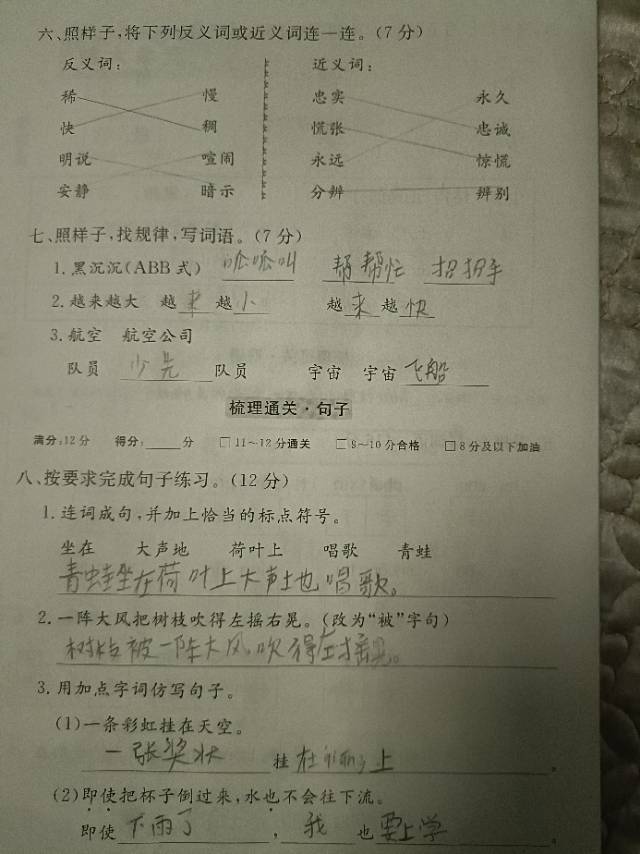 六、照样子,将下列反义词或近义词连一连。(7分)
反义词: 近义词:
稀 慢 忠实 永久
快 稠 慌张 忠诚
明说 喧闹 永远 惊慌
安静 暗示 分辨 辨别
七、照样子,找规律,写词语。(7分)
1.黑沉沉(ABB式) 呱呱叫 帮帮忙 招招手
2.越来越大 越来越小 越来越快
3.航空 航空公司
队员 少先队员 宇宙 宇宙飞船
梳理通关·句子
满分:12分 得分:____分 □11~12分通关 □9~10分合格 □8分及以下加油
八、按要求完成句子练习。(12分)
1.连词成句,并加上恰当的标点符号。
坐在 大声地 荷叶上 唱歌 青蛙
青蛙坐在荷叶上大声地唱歌。
2.一阵大风把树枝吹得左摇右晃。(改为“被”字句)
树枝被一阵大风吹得左摇
3.用加点字词仿写句子。
(1)一条彩虹挂在天空。
一张奖状挂在qiang上。
(2)即使把杯子倒过来,水也不会往下流。
即使下雨了,我也要上学。